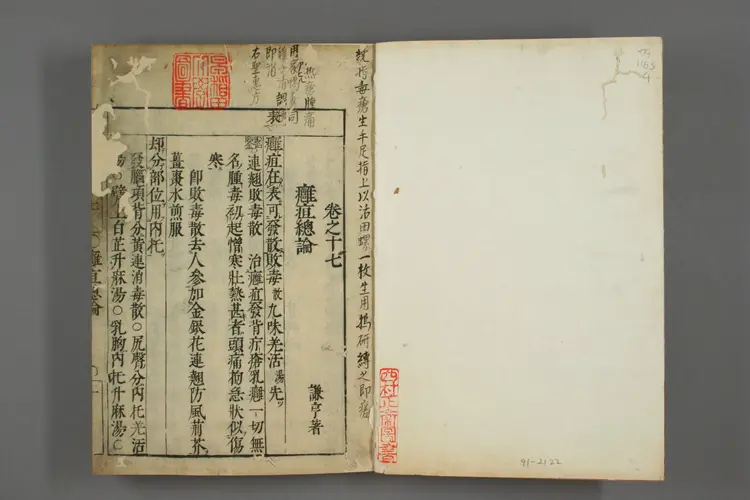 敉指毒瘡生手足指上以活田螺一枚生用搗研縛之即瘥
熱瘡腫痛
即消
右聖惠方
卷之十七
癰疽總論
謙亨著
表
癰疽在表可發散敗毒散九味羌活湯先
連翹敗毒散 治癰疽發背疔瘡乳癰一切無
名腫毒初起憎寒壯熱甚者頭痛拘急狀似傷
寒
即敗毒散去人參加金銀花連翹防風荊芥
薑棗水煎服
却分部位用內托
發腦項背分黃連消毒散○尻臀分內托羌活
湯○臂上白芷升麻湯○乳胸內托升麻湯○
癰疽總論
西村
91-2122